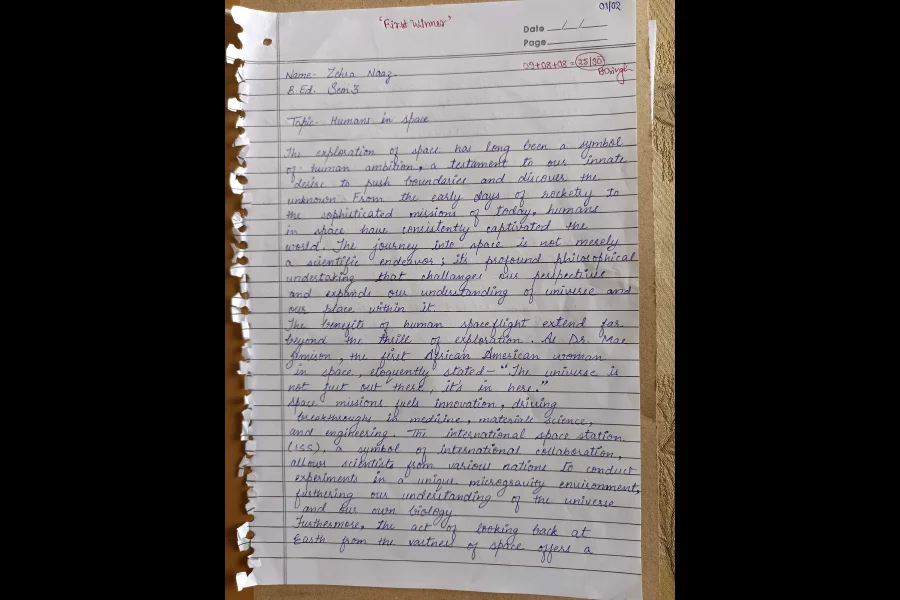 01/02
"First Winner"
Date / /
Page
09+08+08 = 25/30
Name- Zehra Naaz
B.Ed. Sem 3
Topic- Humans in space
The exploration of space has long been a symbol
of human ambition, a testament to our innate
desire to push boundaries and discover the
unknown. From the early days of rocketry to
the sophisticated missions of today, humans
in space have consistently captivated the
world. The journey into space is not merely
a scientific endeavor; its profound philosophical
undertaking that challanges our perspective
and expands our understanding of universe and
our place within it.
The benefits of human spaceflight extend far
beyond the thrills of exploration. As Dr. Mae
Jimison, the first African American woman
in space, eloquently stated- "The universe is
not just out there, it's in here."
space missions fuels innovation, driving
breakthroughs in medicine, materials science,
and engineering. The international space station
(ISS), a symbol of international collaboration,
allows scientists from various nations to conduct
experiments in a unique microgravity environment,
furthering our understanding of the universe
and our own biology
Furthermore, the act of looking back at
Earth from the vastnes of space offers a